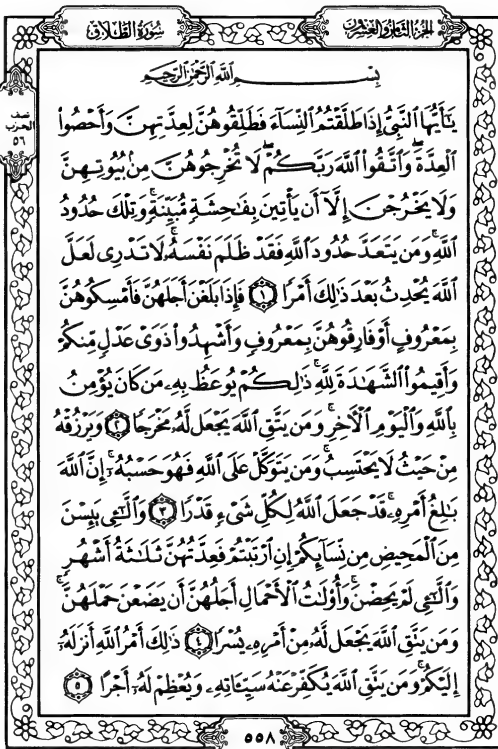 سُورَةُ الطَّلَاقِ
الجزء الثامن والعشرون
نصف
الحزب
٥٦
بِسْمِ اللَّهِ الرَّحْمَٰنِ الرَّحِيمِ
يَـٰٓأَيُّهَا ٱلنَّبِىُّ إِذَا طَلَّقْتُمُ ٱلنِّسَآءَ فَطَلِّقُوهُنَّ لِعِدَّتِهِنَّ وَأَحْصُوا۟
ٱلْعِدَّةَ ۖ وَٱتَّقُوا۟ ٱللَّهَ رَبَّكُمْ ۖ لَا تُخْرِجُوهُنَّ مِنۢ بُيُوتِهِنَّ
وَلَا يَخْرُجْنَ إِلَّآ أَن يَأْتِينَ بِفَـٰحِشَةٍ مُّبَيِّنَةٍ ۚ وَتِلْكَ حُدُودُ
ٱللَّهِ ۚ وَمَن يَتَعَدَّ حُدُودَ ٱللَّهِ فَقَدْ ظَلَمَ نَفْسَهُۥ ۚ لَا تَدْرِى لَعَلَّ
ٱللَّهَ يُحْدِثُ بَعْدَ ذَٰلِكَ أَمْرًا ١ فَإِذَا بَلَغْنَ أَجَلَهُنَّ فَأَمْسِكُوهُنَّ
بِمَعْرُوفٍ أَوْ فَارِقُوهُنَّ بِمَعْرُوفٍ وَأَشْهِدُوا۟ ذَوَىْ عَدْلٍ مِّنكُمْ
وَأَقِيمُوا۟ ٱلشَّهَـٰدَةَ لِلَّهِ ۚ ذَٰلِكُمْ يُوعَظُ بِهِۦ مَن كَانَ يُؤْمِنُ
بِٱللَّهِ وَٱلْيَوْمِ ٱلْأَخِرِ ۚ وَمَن يَتَّقِ ٱللَّهَ يَجْعَل لَّهُۥ مَخْرَجًا ٢ وَيَرْزُقْهُ
مِنْ حَيْثُ لَا يَحْتَسِبُ ۚ وَمَن يَتَوَكَّلْ عَلَى ٱللَّهِ فَهُوَ حَسْبُهُۥٓ ۚ إِنَّ ٱللَّهَ
بَـٰلِغُ أَمْرِهِۦ ۚ قَدْ جَعَلَ ٱللَّهُ لِكُلِّ شَىْءٍ قَدْرًا ٣ وَٱلَّـٰٓـِٔى يَئِسْنَ
مِنَ ٱلْمَحِيضِ مِن نِّسَآئِكُمْ إِنِ ٱرْتَبْتُمْ فَعِدَّتُهُنَّ ثَلَـٰثَةُ أَشْهُرٍ
وَٱلَّـٰٓـِٔى لَمْ يَحِضْنَ ۚ وَأُو۟لَـٰتُ ٱلْأَحْمَالِ أَجَلُهُنَّ أَن يَضَعْنَ حَمْلَهُنَّ ۚ
وَمَن يَتَّقِ ٱللَّهَ يَجْعَل لَّهُۥ مِنْ أَمْرِهِۦ يُسْرًا ٤ ذَٰلِكَ أَمْرُ ٱللَّهِ أَنزَلَهُۥٓ
إِلَيْكُمْ ۚ وَمَن يَتَّقِ ٱللَّهَ يُكَفِّرْ عَنْهُ سَيِّـَٔاتِهِۦ وَيُعْظِمْ لَهُۥٓ أَجْرًا ٥
٥٥٨